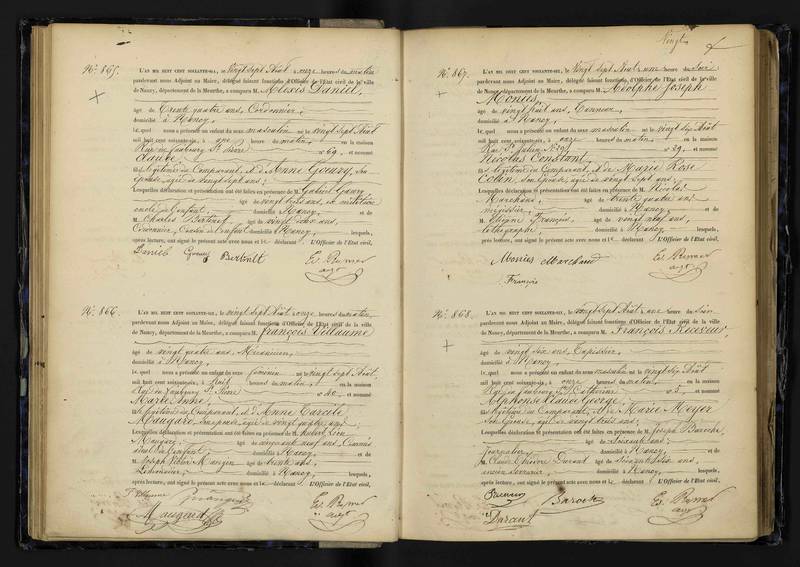 N.° 865.
L'AN MIL HUIT CENT SOIXANTE-SIX, le Vingt Sept Août à onze heures du matin
pardevant nous Adjoint au Maire, délégué faisant fonctions d'Officier de l'Etat civil de la ville
de Nancy, département de la Meurthe, a comparu M. Alexis Daniel,
âgé de Trente quatre ans, Cordonnier,
domicilié à Nancy,
lequel nous a présenté un enfant du sexe masculin né le vingt Sept Août
mil huit cent soixante-six, à une heure du matin, en la maison
Rue du faubourg St Pierre n.° 69, et nommé
fils légitime du Comparant, et d'Anne Goury, Son
épouse, agée de vingt sept ans;
Lesquelles déclaration et présentation ont été faites en présence de M. Gabriel Goury
âgé de vingt trois ans,
oncle de l'enfant, domicilié à Nancy, et de
M. Charles Bertrait âgé de vingt deux ans,
Cordonnier, Cousin de l'enfant domicilié à Nancy, lesquels,
après lecture, ont signé le présent acte avec nous et le déclarant. L'Officier de l'Etat civil,
Daniel Goury
N.° 866
L'AN MIL HUIT CENT SOIXANTE-SIX, le vingt Sept Août à onze heures du matin
pardevant nous Adjoint au Maire, délégué faisant fonctions d'Officier de l'Etat civil de la ville
de Nancy, département de la Meurthe, a comparu M. François
âgé de vingt quatre ans,
domicilié à Nancy,
lequel nous a présenté un enfant du sexe féminin né le vingt Sept Août
mil huit cent soixante-six, à heures du matin, en la maison
faubourg St Pierre n.° et nommé
Marie Anne,
fille légitime du Comparant, et d'Anne
Maugard, Son épouse, agée de vingt quatre ans;
Lesquelles déclaration et présentation ont été faites en présence de M. Hubert
Maugard, âgé de cinquante neuf ans,
de l'enfant, domicilié à Nancy, et de
M. Joseph Victor Mangin âgé de trente ans,
domicilié à Nancy, lesquels,
après lecture, ont signé le présent acte avec nous et le déclarant. L'Officier de l'Etat civil,
Maugard
Vingt
N.° 867.
L'AN MIL HUIT CENT SOIXANTE-SIX, le Vingt Sept Août à une heure du Soir
pardevant nous Adjoint au Maire, délégué faisant fonctions d'Officier de l'Etat civil de la ville
de Nancy, département de la Meurthe, a comparu M. Adolphe Joseph
âgé de vingt huit ans,
domicilié à Nancy,
lequel nous a présenté un enfant du sexe masculin né le vingt Six Août
mil huit cent soixante-six, à onze heures du matin, en la maison
Rue St Julien N.° 29, et nommé
Nicolas Constant,
fils légitime du Comparant, et de Marie Rose
Colin, Son épouse, agée de vingt Sept ans;
Lesquelles déclaration et présentation ont été faites en présence de M. Nicolas
Marchand, âgé de trente quatre ans,
domicilié à Nancy, et de
M. Eugène François, âgé de vingt neuf ans,
lithographe, domicilié à Nancy, lesquels,
après lecture, ont signé le présent acte avec nous et le déclarant. L'Officier de l'Etat civil,
Marchand
François
N.° 868.
L'AN MIL HUIT CENT SOIXANTE-SIX, le vingt Sept Août à une heure du Soir
pardevant nous Adjoint au Maire, délégué faisant fonctions d'Officier de l'Etat civil de la ville
de Nancy, département de la Meurthe, a comparu M. François Receveur,
âgé de vingt six ans, Tapissier,
domicilié à Nancy,
lequel nous a présenté un enfant du sexe masculin né le vingt Six Août
mil huit cent soixante-six, à onze heures du matin, en la maison
Rue du faubourg Ste Catherine n.° 5 et nommé
Alphonse Claude George,
fils légitime du Comparant, et de Marie Meyer
Son épouse, agée de vingt trois ans;
Lesquelles déclaration et présentation ont été faites en présence de M. Joseph
âgé de Soixante ans,
domicilié à Nancy, et
de Claude Durant âgé de Soixante Six ans,
domicilié à Nancy, lesquels,
après lecture, ont signé le présent acte avec nous et le déclarant. L'Officier de l'Etat civil,
Durant